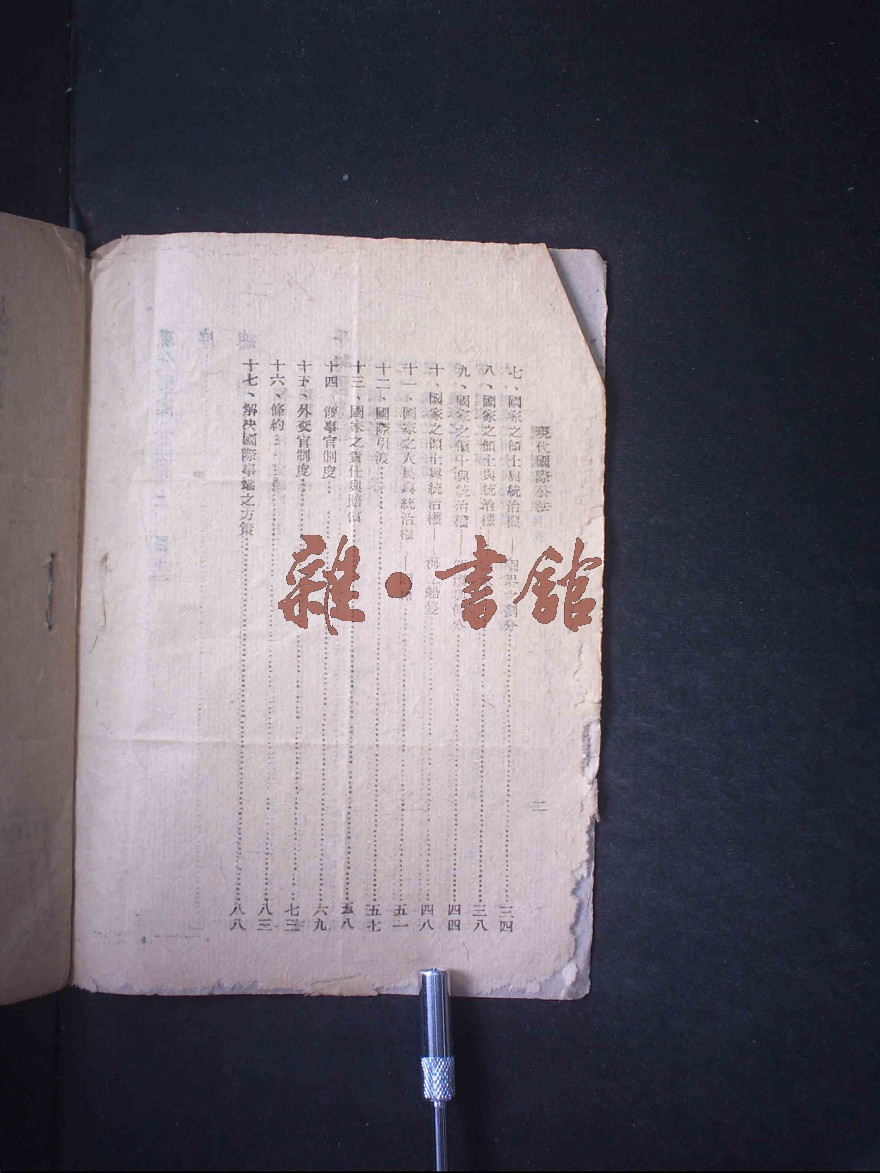 現代國際公法
二
七、國家之領土與統治權——國界之劃分 三四
八、國家之領土與統治權 三八
九、國家之領土與統治權 四四
十、國家之領土與統治權——海上船隻 四八
十一、國家之人民與統治權 五一
十二、國際引渡 五七
十三、國家之責任與賠償 五八
十四、領事官制度 六九
十五、外交官制度 七三
十六、條約 八三
十七、解決國際爭端之方策 八八
雜·書館